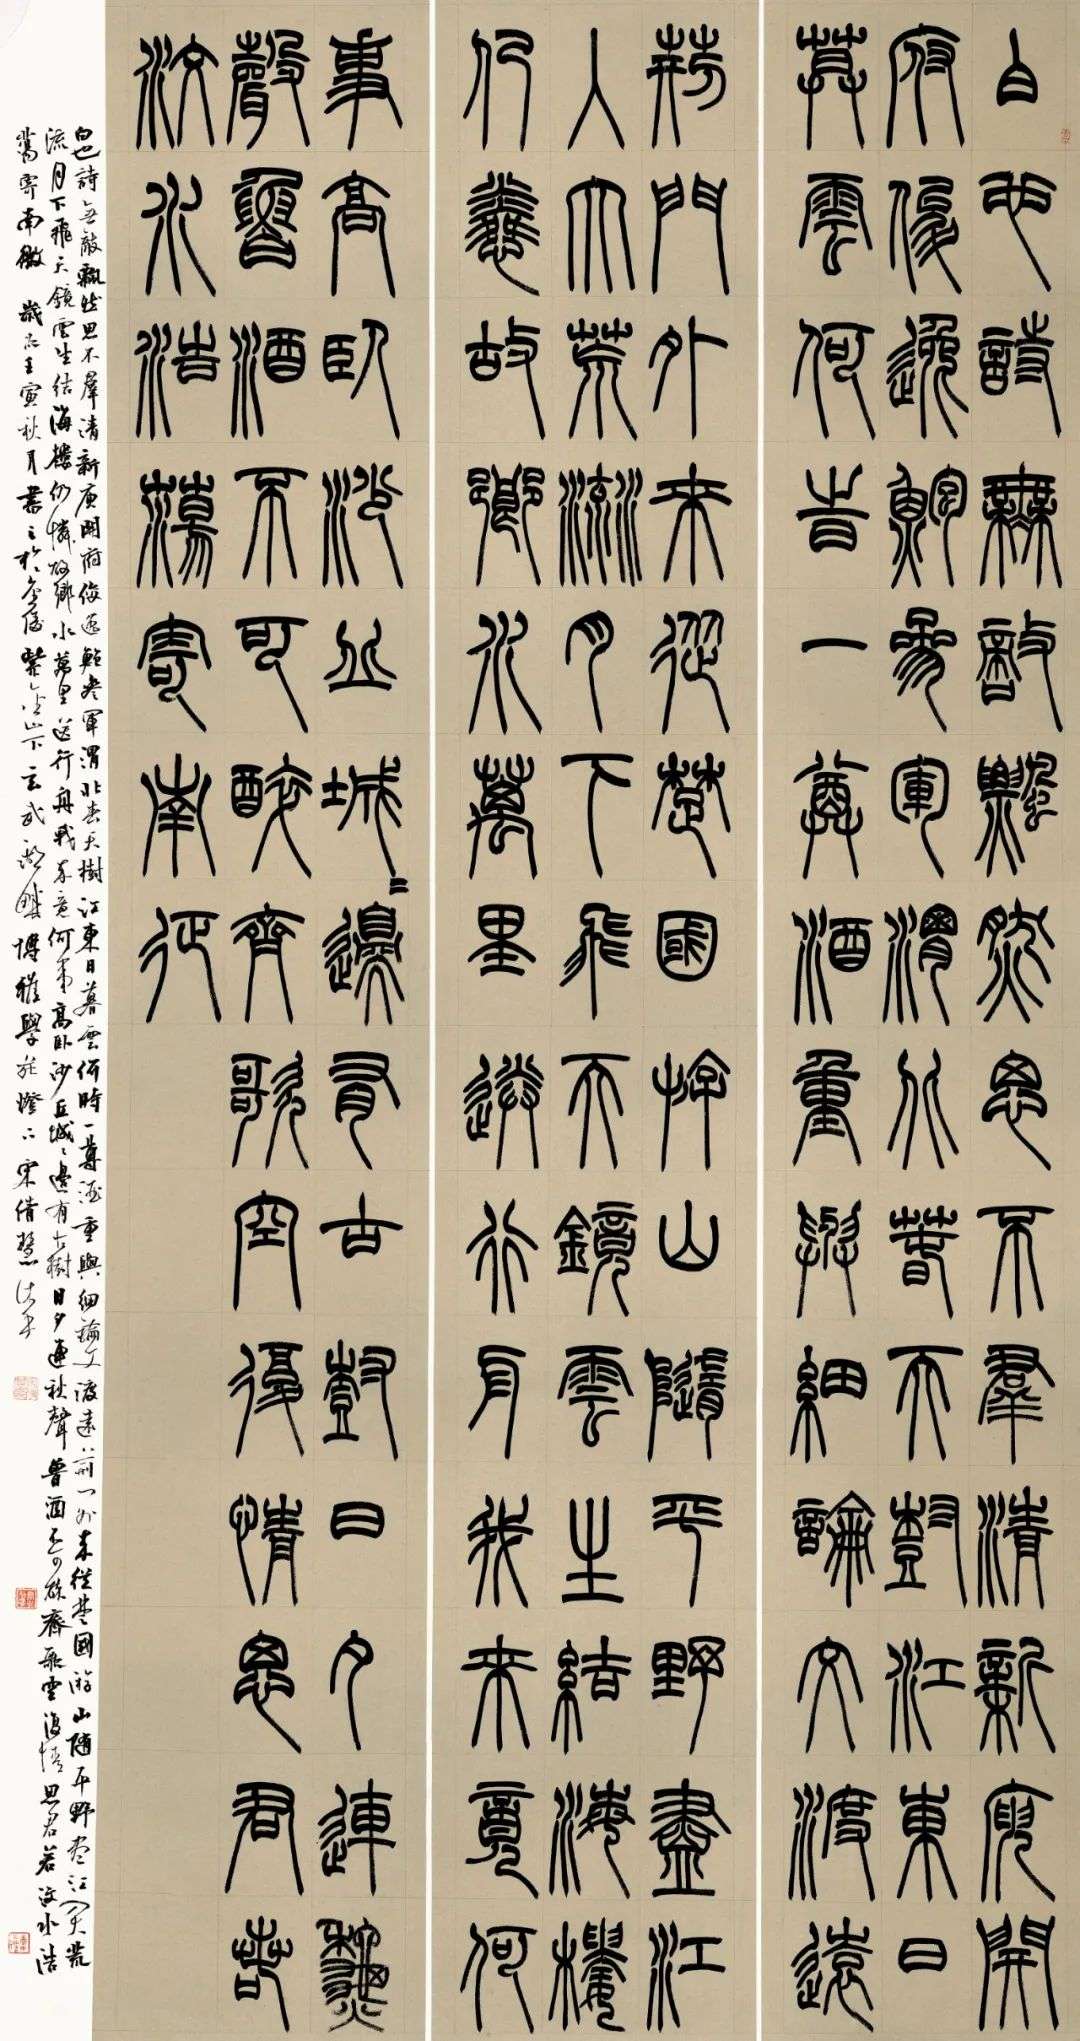 白也詩無敵飄然思不羣清新庾開
府俊逸鮑參軍渭北春天樹江東日
暮雲何時一尊酒重與細論文渡遠
荊門外來從楚國游山隨平野盡江
入大荒流月下飛天鏡雲生結海樓
仍憐故鄉水萬里送行舟我來竟何
事高臥沙丘城〻邊有古樹日夕連秋
聲魯酒不可醉齊歌空復情思君若
汶水浩蕩寄南征
白也詩無敵飄然思不羣清新庾開府俊逸鮑參軍渭北春天樹江東日暮雲何時一尊酒重與細論文渡遠荊門外來從楚國游山隨平野盡江入大荒
流月下飛天鏡雲生結海樓仍憐故鄉水萬里送行舟我來竟何事高臥沙丘城〻邊有古樹日夕連秋聲魯酒不可醉齊歌空復情思君若汶水浩
蕩寄南徵 歲在壬寅秋月書之於金陵紫金山下玄武湖畔博雅學苑燈下宋倩慧沐手